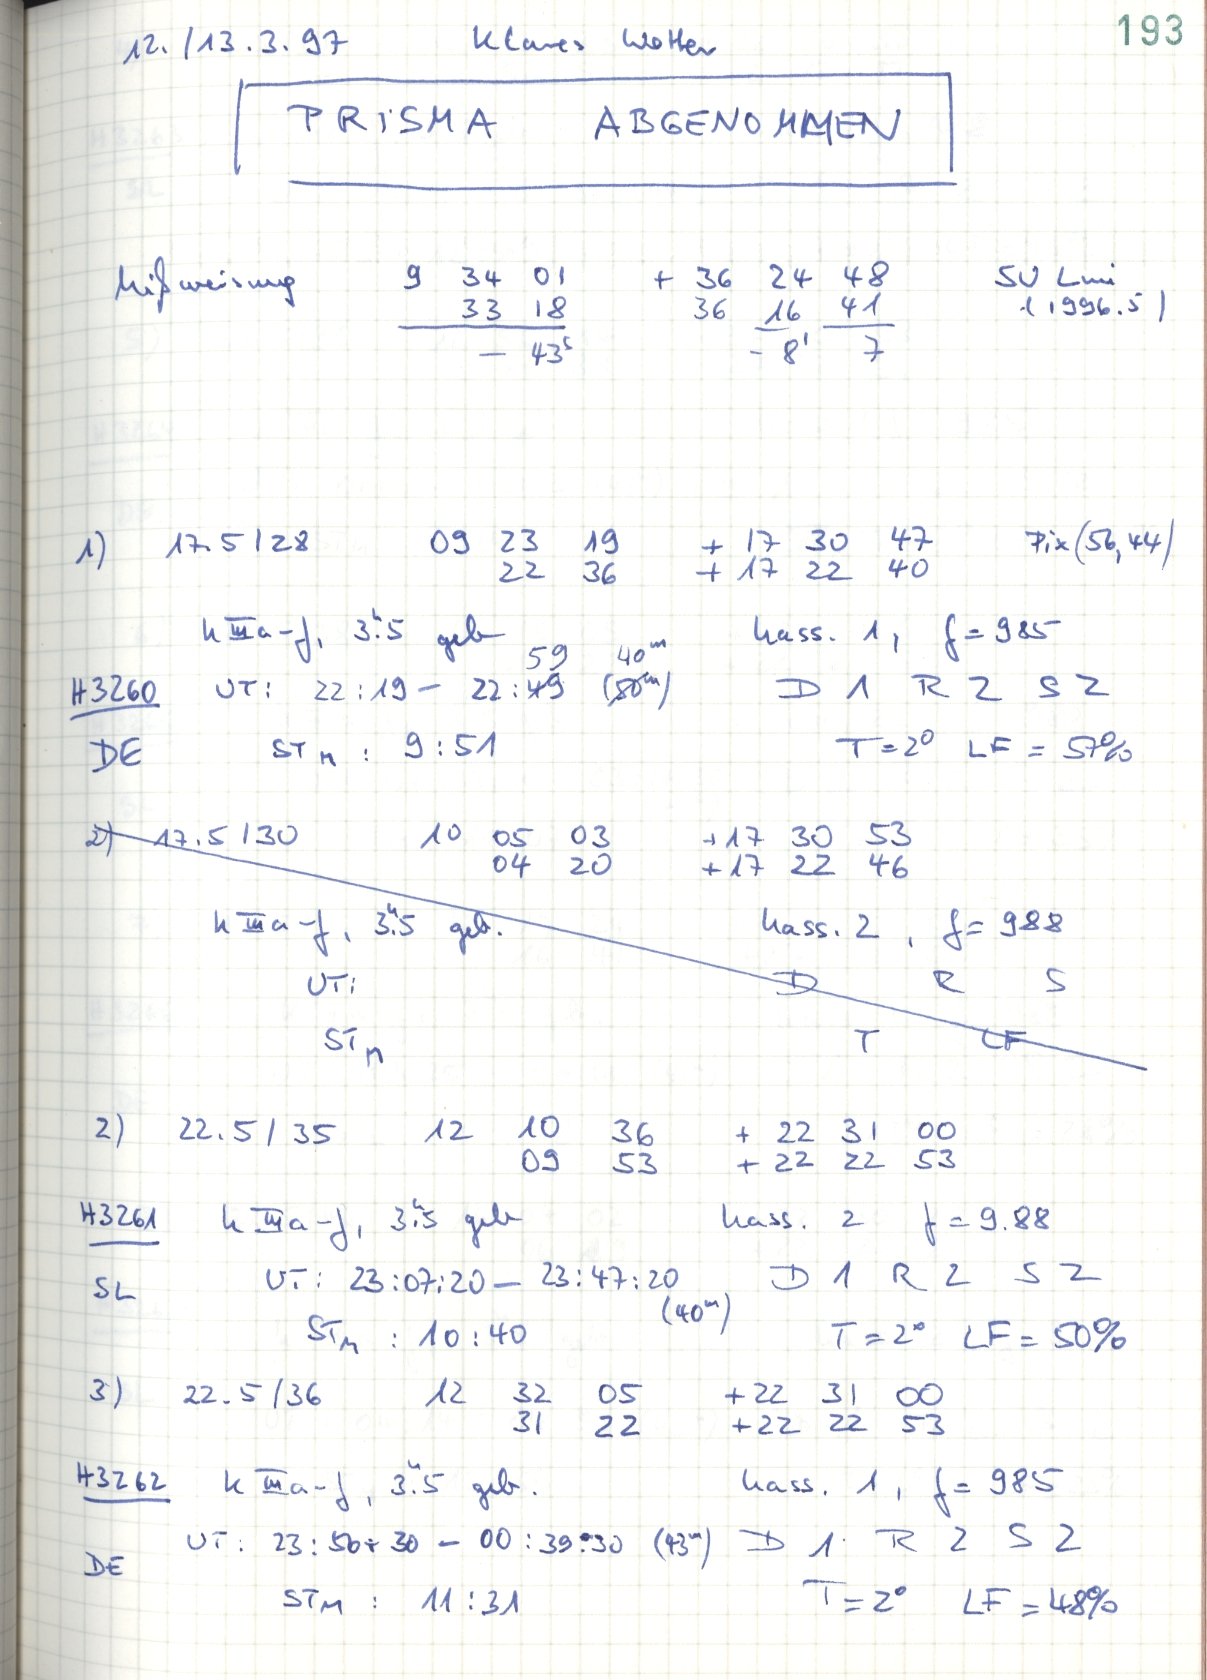 193
12./13.3.97 Klares Wetter
PRISMA ABGENOMMEN
Mißweisung 9 34 01 + 36 24 48 SU LMi
33 18 36 16 41 (1996.5)
- 43s - 8' 7
1) 17.5/28 09 23 19 + 17 30 47 Pix(56,44)
22 36 + 17 22 40
k IIIa-f, 3h.5 geb Kass. 1, f=985
59 40m
H3260 UT: 22:19 - 22:49 (50m) D 1 R 2 S 2
DE STM : 9:51 T=2° LF = 57%
2) 17.5/30 10 05 03 +17 30 53
04 20 +17 22 46
k IIIa-f, 3h.5 geb. Kass. 2, f=988
UT: D R S
STM T LF
2) 22.5/35 12 10 36 + 22 31 00
09 53 + 22 22 53
H3261 k IIIa-f, 3h.5 geb Kass. 2 f=9.88
SL UT: 23:07:20 - 23:47:20 D 1 R 2 S 2
(40m)
STM : 10:40 T=2° LF = 50%
3) 22.5/36 12 32 05 +22 31 00
31 22 +22 22 53
H3262 k IIIa-f, 3h.5 geb. Kass. 1, f=985
UT: 23:56:30 - 00:39:30 (43m) D 1 R 2 S 2
DE STM : 11:31 T=2° LF = 48%